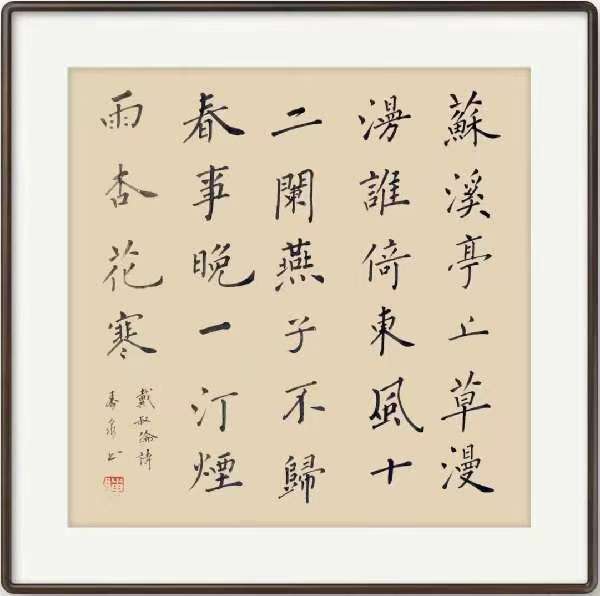 蘇溪亭上草漫
漫誰倚東風十
二闌燕子不歸
春事晚一汀煙
雨杏花寒
戴叔倫詩